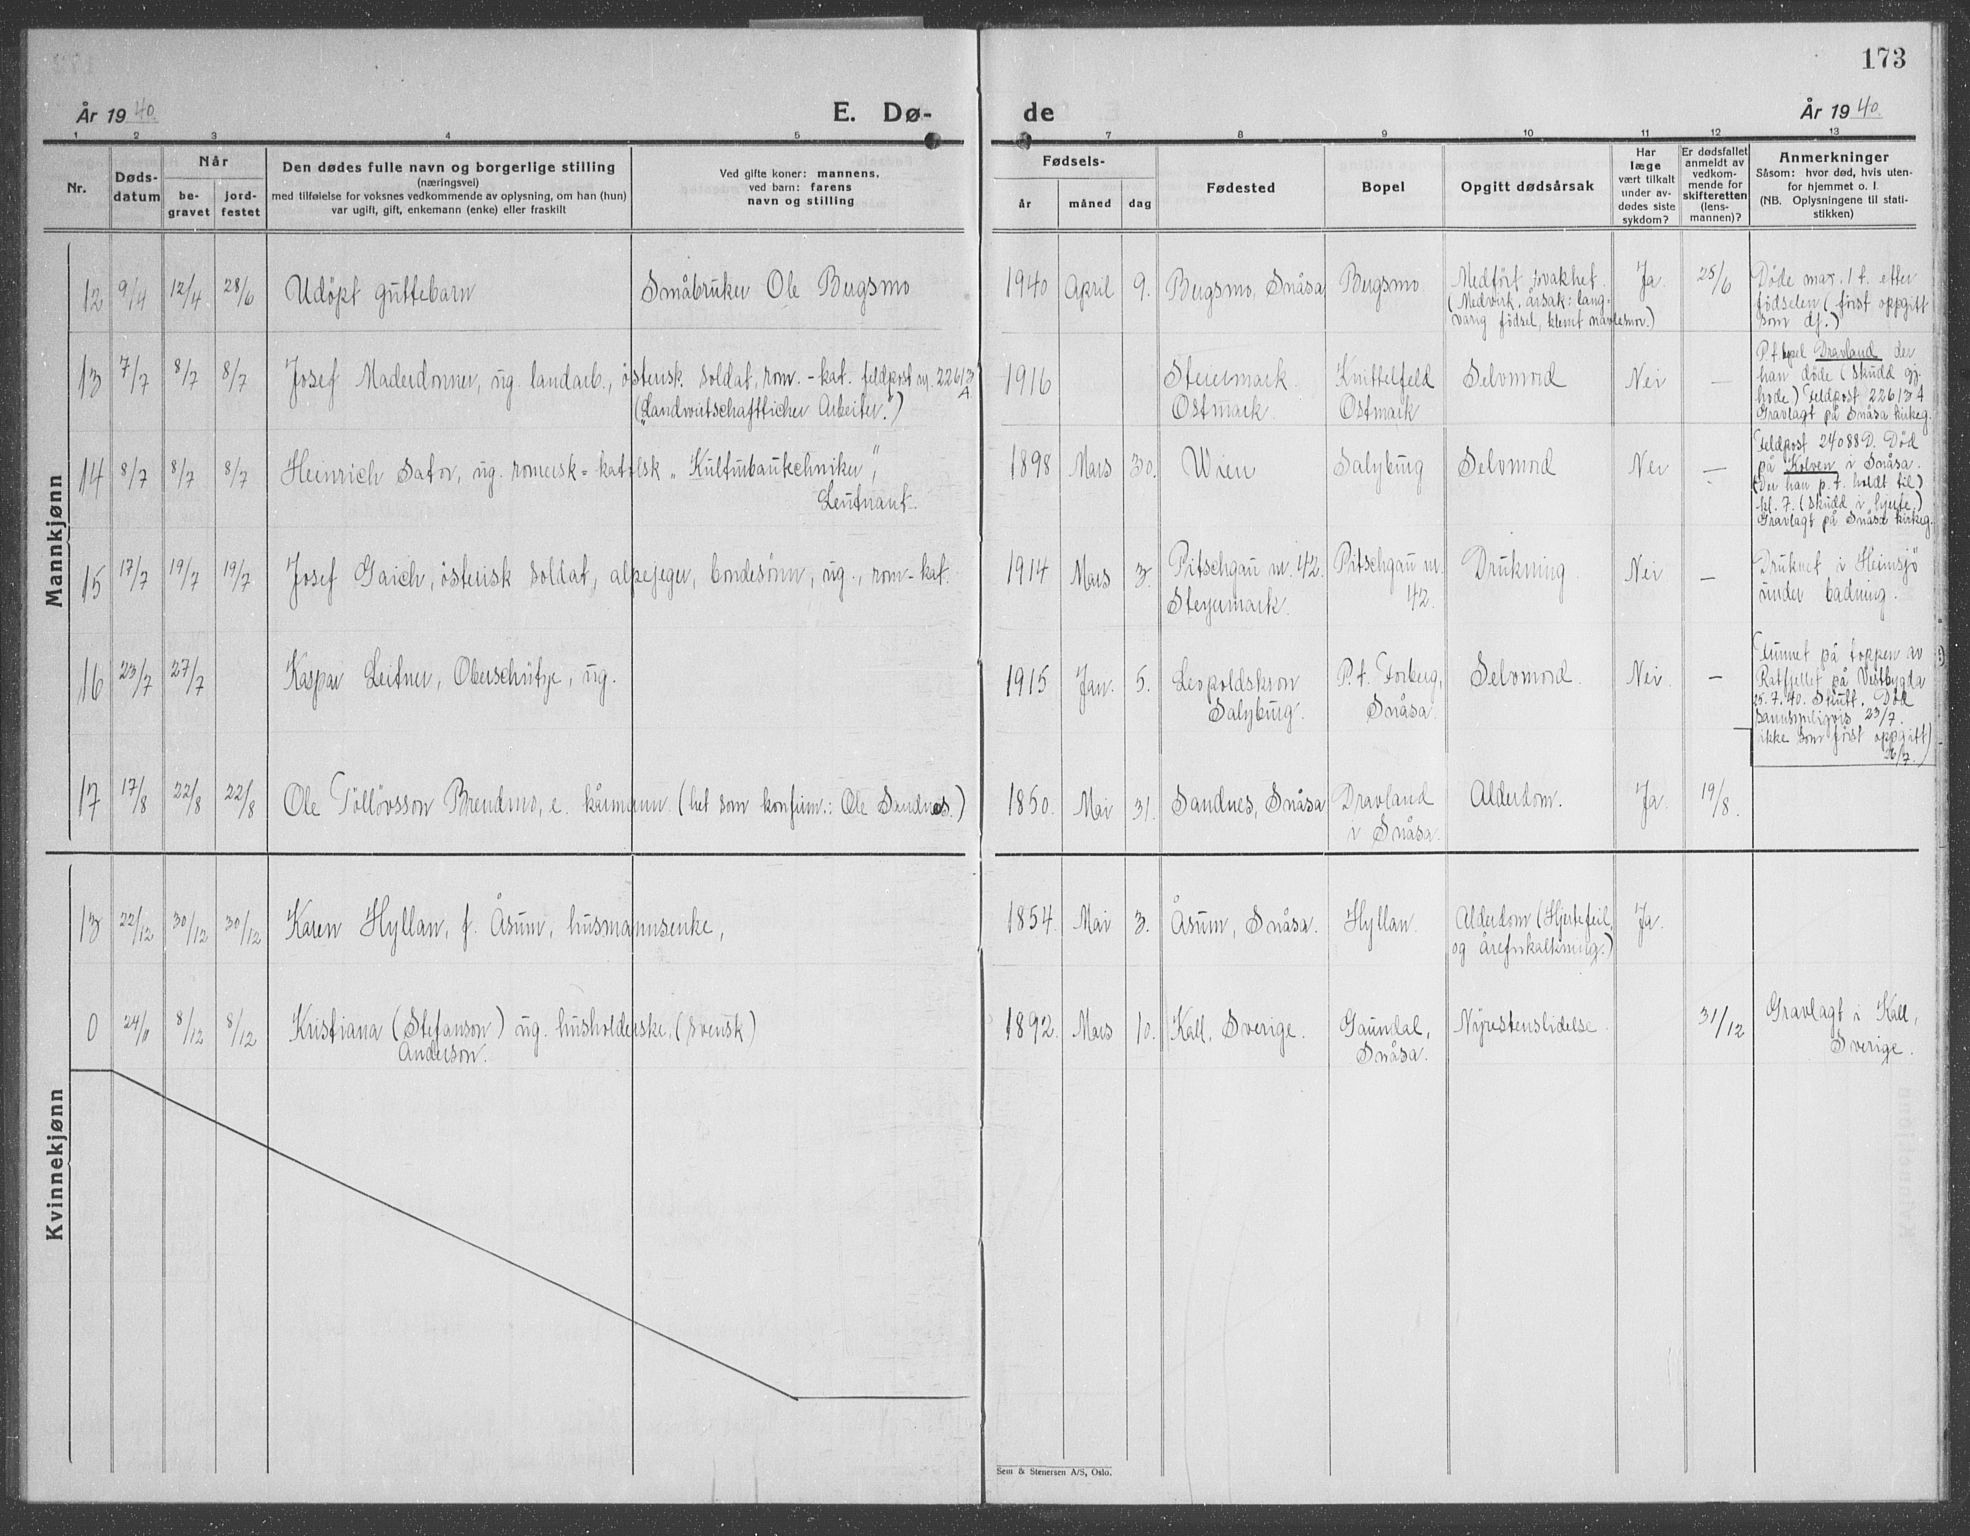 173
År 1940. E. Dø- de År 1940.
1 2 3 4 5 7 8 9 10 11 12 13
Nr.
Døds-
datum
Når
be-
gravet
jord-
festet
Den dødes fulle navn og borgerlige stilling
(næringsvei)
med tilføielse for voksnes vedkommende av oplysning, om han (hun)
var ugift, gift, enkemann (enke) eller fraskilt
Ved gifte koner: mannens,
ved barn: farens
navn og stilling
Fødsels-
år måned dag
Fødested
Bopel
Opgitt dødsårsak
Har
læge
vært tilkalt
under av-
dødes siste
sykdom?
Er dødsfallet
anmeldt av
vedkom-
mende for
skifteretten
(lens-
mannen)?
Anmerkninger
Såsom: hvor død, hvis uten-
for hjemmet o. l.
(NB. Oplysningene til stati-
stikken)
Mannkjønn
12 9/4 12/4. 28/6 Udöpt guttebarn Småbruker Ole Bergsmo 1940 April 9. Bergsmo, Snåsa Bergsmo. Medfört svakhet. Ja 25/6 Döde max. 1 t. etter
(Medvirk. årsak: lang- födselen (först oppgitt
varig födsel, klemt navlesnor.) som df.)
13 7/7 8/7 8/7 Josef Maderdonner, ug. landarb., österisk. soldat, rom.-kat. feldpost nr. 22613 A 1916 Steiermark Ostmark. Knittelfeld Ostmark Selvmord Nei — P.t. bopel Dravland der
("Landwirtschaftlicher Arbeiter.") han döde (skudd gj.
hode) Feldpost 22613 A
Gravlagt på Snåsa kirkeg.
14 8/7 8/7 8/7 Heinrich Sator, ug. romersk-katolsk "Kulturbautechniker", 1898 Mars 30. Wien Salzburg Selvmord Nei — Feldpost 24088 D. Död
Leutnant. på Kolven i Snåsa.
(Der han p.t. holdt til)
kl. 7. (Skudd i hjerte.)
Gravlagt på Snåsa kirkeg.
15 17/7 19/7 19/7 Josef Gaich, österisk soldat, alpejeger, bondesönn, ug., rom-kat. 1914 Mars 3. Pitschgau nr. 42. Pitschgau nr. Drukning Nei — Druknet i Heimsjö
Steyermark. 42. under badning.
16 23/7 27/7 Kaspar Leitner, Oberschütze, ug. 1915 Jan. 5. Leopoldskron P.t. Forberg, Selvmord. Nei. — Funnet på toppen av
Salzburg. Snåsa. Ratfjellet på Vestbygda
25.7.40. Skutt. Död
sannsynligvis 23/7.
ikke som först oppgitt)
26/7.)
17 17/8 22/8 22/8 Ole Tollövsson Brendmo, e. kårmann. (het som konfirm.: Ole Sandnes.) 1850. Mai 31. Sandnes, Snåsa Dravland Alderdom. Ja 19/8.
i Snåsa.
Kvinnekjønn
13 22/12 30/12 30/12 Karen Hyllan, f. Åsum, husmannsenke, 1854. Mai 3. Åsum, Snåsa. Hyllan. Alderdom (Hjertefeil Ja.
og årefrkalkning.)
0 24/11 8/12 8/12 Kristiana (Stefanson) ug. husholderske. (svensk) 1892. Mars 10. Kall, Sverige. Gaundal, Nyrestenslidelse. 31/12 Gravlagt i Kall,
Anderson. Snåsa. Sverige.
Sem & Stenersen A/S, Oslo.